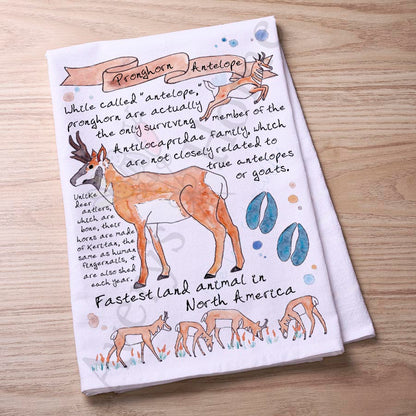 Pronghorn Antelope
While called "antelope,"
pronghorn are actually
the only surviving member of the
Antilocapridae family, which
are not closely related to
true antelopes
or goats.
Unlike
deer
antlers,
which are
bone, their
horns are made
of Keritan, the
same as human
fingernails, +
are also shed
each year.
Fastest land animal in
North America